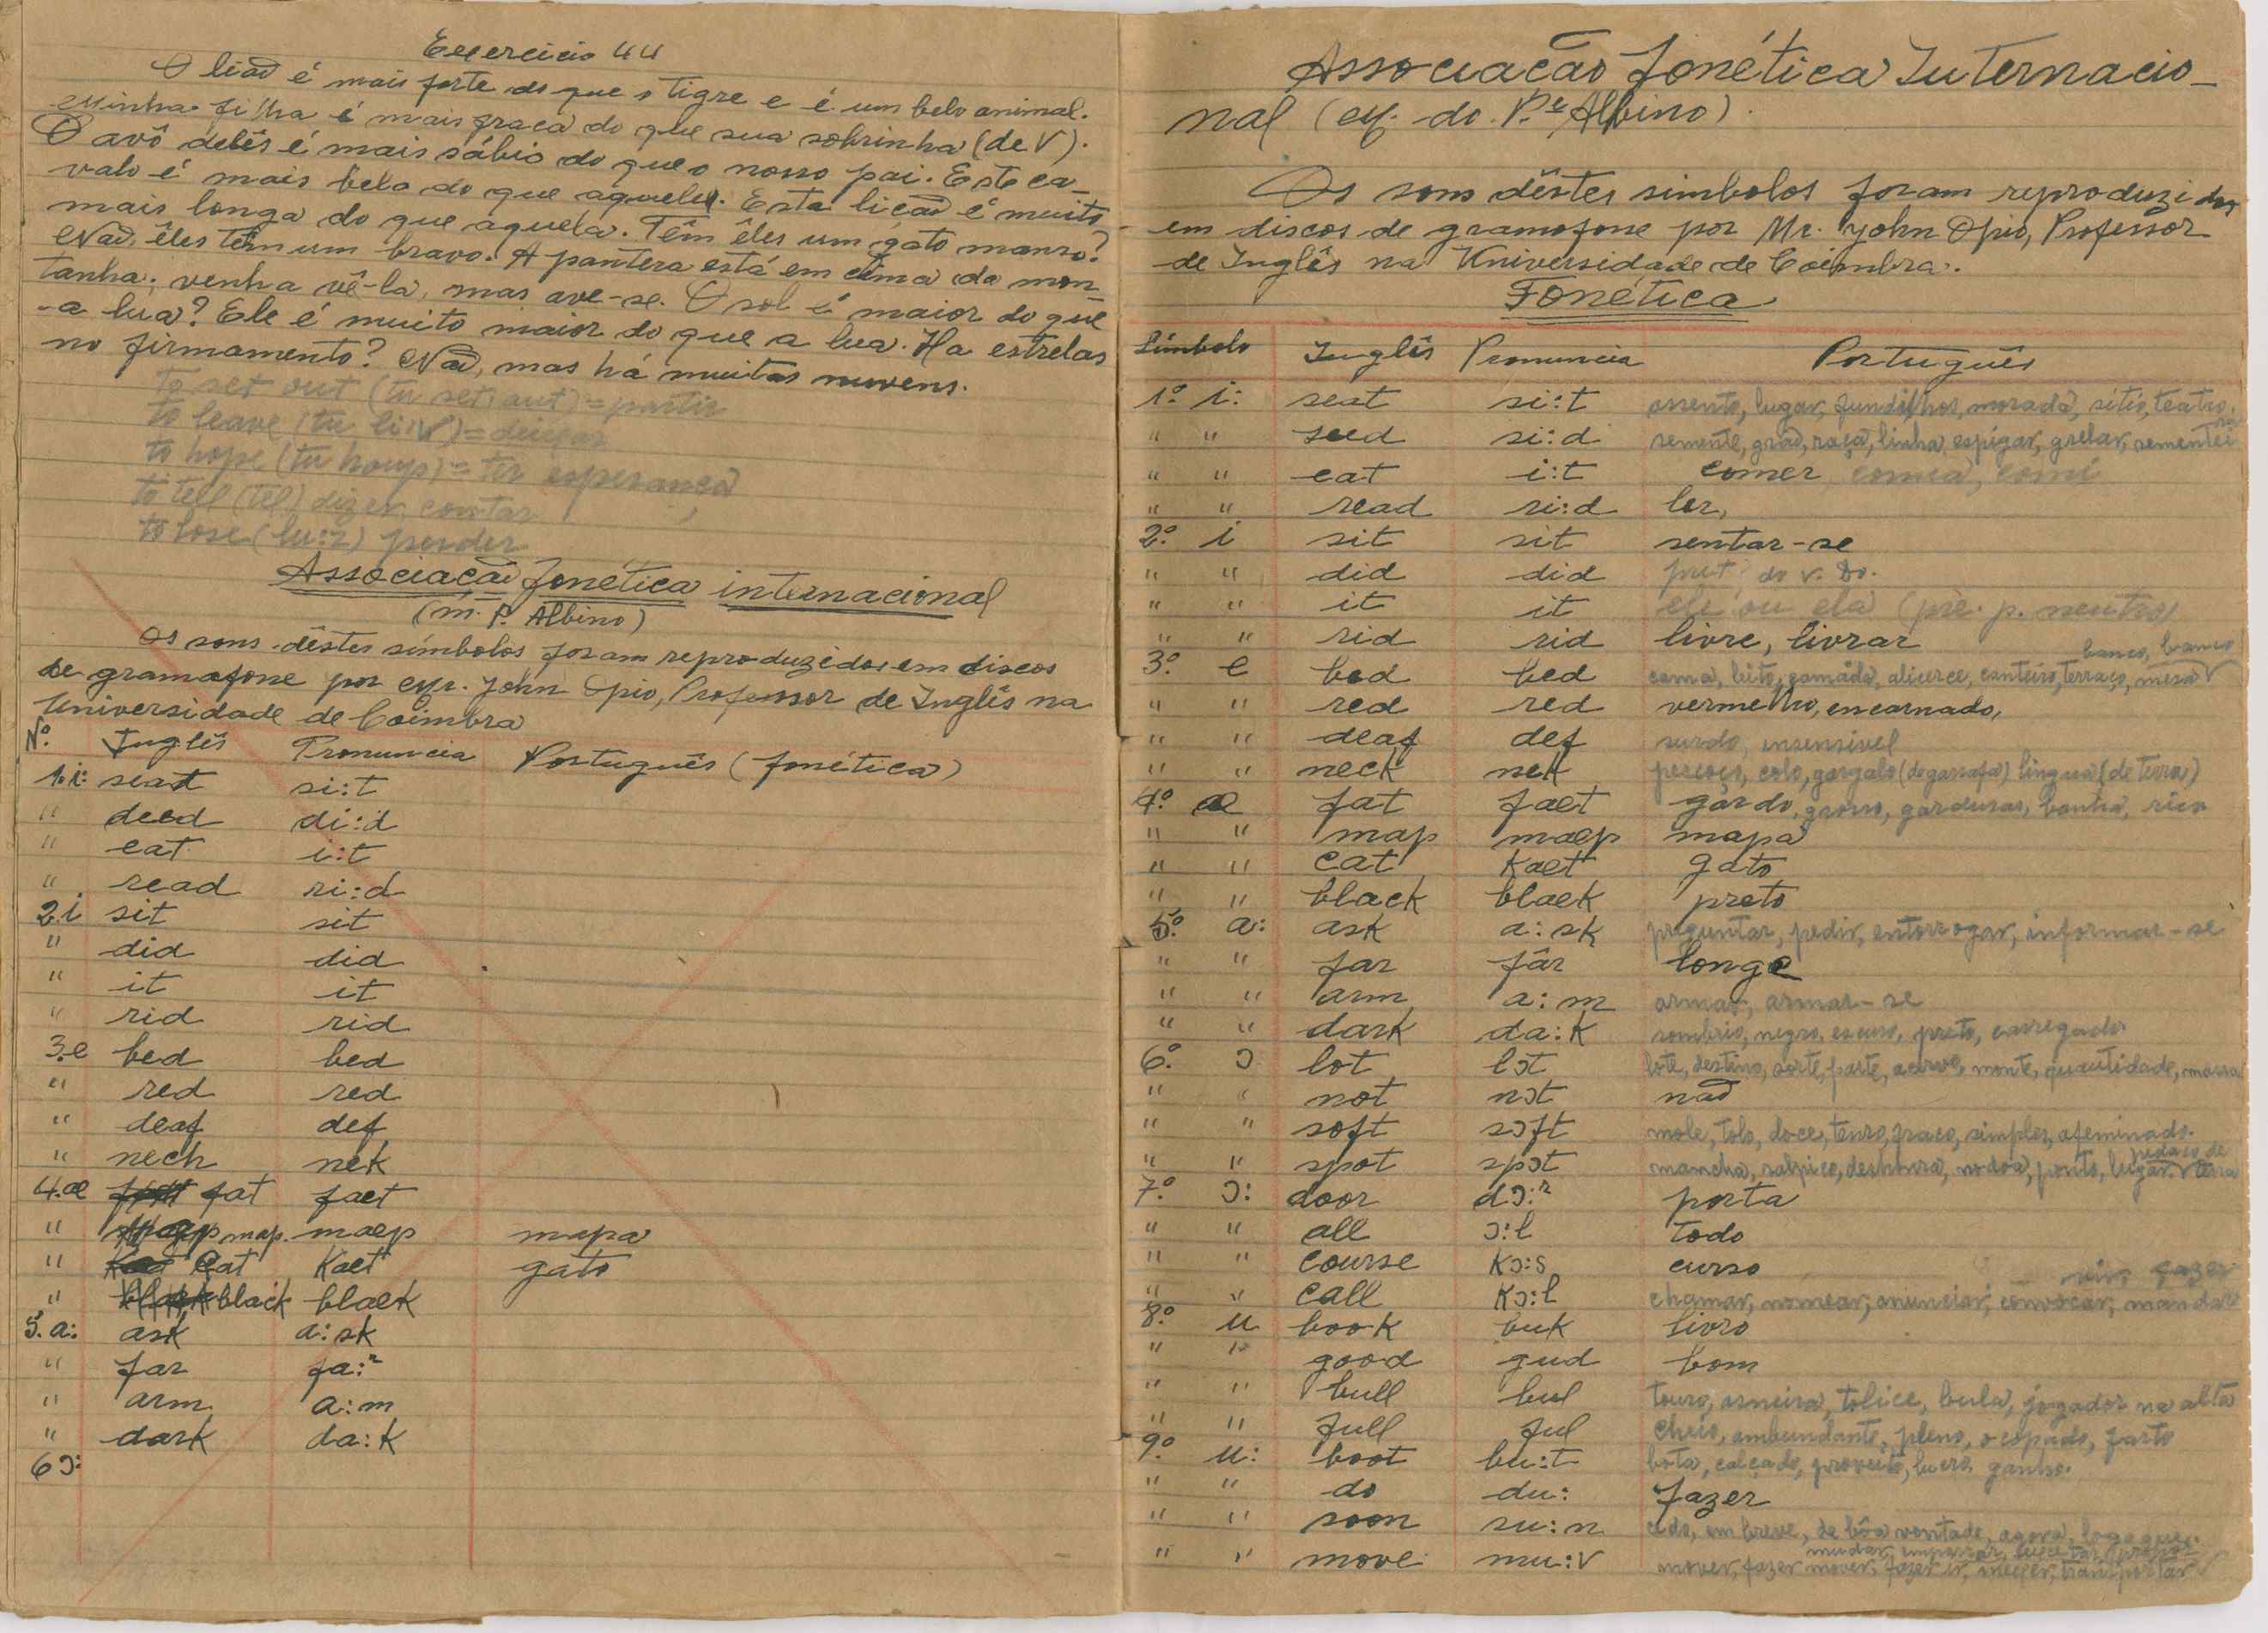 Exercicio 44
O lião é mais forte do que o tigre e é um belo animal.
Minha filha é mais fraca do que sua sobrinha (de V).
O avô delês é mais sábio do que o nosso pai. Este ca-
valo é mais belo do que aquele. Esta lição é muito
mais longa do que aquela. Têm êles um gato manso?
Não, êles têm um bravo. A pantera está em cima da mon-
tanha; venha vê-la, mas ave-se. O sol é maior do que
-a lua? Ele é muito maior do que a lua. Ha estrelas
no firmamento? Não, mas há muitas nuvens.
to set out (tu set aut) = partir
to leave (tu li:v) = deixar
to hope (tu houp) = ter esperança
to tell (tel) dizer, contar
to lose (lu:z) perder
Associação fonética internacional
(m. P. Albino)
Os sons dêstes símbolos foram reproduzidos em discos
de gramofone por Mr. John Opio, Professor de Inglês na
Universidade de Coimbra
Nº. Inglês Pronuncia Português (fonética)
1. i: seat si:t
" deed di:d
" eat i:t
" read ri:d
2. i sit sit
" did did
" it it
" rid rid
3. e bed bed
" red red
" deaf def
" nech nek
4. æ fat faet
" map. maep mapa
" Cat Kaet gato
" black blaek
5. a: ask a:sk
" far fa:r
" arm a:m
" dark da:k
6 ɔ:
Associação fonética Internacio-
nal (ex. do P.e Albino).
Os sons dêstes símbolos foram reproduzidos
em discos de gramofone por Mr. John Opio, Professor
de Inglês na Universidade de Coimbra.
Fonética
Símbolo Inglês Pronuncia Português
1º. i: seat si:t assento, lugar, fundilhos, morada, sítio, teatro.
" " seed si:d semente, grão, raça, linha espigar, grelar, sementei
" " eat i:t comer comia, comi
" " read ri:d ler,
2º. i sit sit sentar-se
" " did did pret. do v. Do.
" " it it ele ou ela (pre. p. neutro)
" " rid rid livre, livrar
banco, banco
3º. e bed bed cama, leito, camada, alicerce, canteiro, terraço, mesa V
" " red red vermelho, encarnado,
" " deaf def surdo, insensivel
" " neck nek pescoço, colo, gargalo (de garrafa) lingua (de terra)
4º. æ fat faet gordo, grosso, gorduras, banha, rico
" " map maep mapa
" " cat Kaet gato
" " black blaek preto
5º. a: ask a:sk preguntar, pedir, entorrogar, informar-se
" " far fâr longe
" " arm a:m armar, armar-se
" " dark da:k sombrio, negro, escuro, preto, carregado
6º. ɔ lot lɔt lote, destino, sorte, parte, acervo, monte, quantidade, massa
" " not nɔt não
" " soft sɔft mole, tolo, doce, tenro, fraco, simples, afeminado.
pedaço de
" " spot spɔt mancha, salpico, deshonra, nodoa, ponto, lugar. V terra
7º. ɔ: door dɔ:r porta
" " all ɔ:l todo
" " course kɔ:s curso
fazer
" " call kɔ:l chamar, nomear, anunciar, convocar, mandar
8º. u book buk livro
" " good gud bom
" " bull bul touro, asneira, tolice, bula, jogador na alta
" " full ful cheio, ambundante, pleno, ocupado, farto
9º. u: boot bu:t bota, calçado, proveito, lucro, ganho.
" " do du: fazer
" " soon su:n cedo, em breve, de bôa vontade, agora, logo que.
mudar, empurrar,
" " move mu:v mover, fazer mover, fazer ir, mexer, transportar V